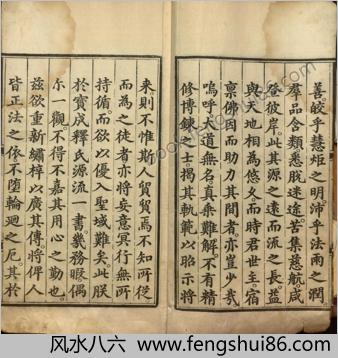 善皎乎慧炬之明沛乎法雨之潤
群品含類悉脫迷途苦集慈航咸
登彼岸此其源之遠而流之長益
與天地相為悠久而時君世主宿
禀佛因而助力其間者亦豈少哉
嗚呼大道無名真乘難解不有精
修博鍊之士揭其軌範以昭示將
来則不惟斯人貿貿焉不知所從
而為之徒者亦將妄意冥行無所
持循而欲以優入聖域難矣此朕
於寳成釋氏源流一書幾務暇偶
尓一觀不得不嘉其用心之勤也
兹欲重新繡梓以廣其傳將俾人
皆正法之依不墮輪廻之厄其於
风水八六 - www.fengshui86.com